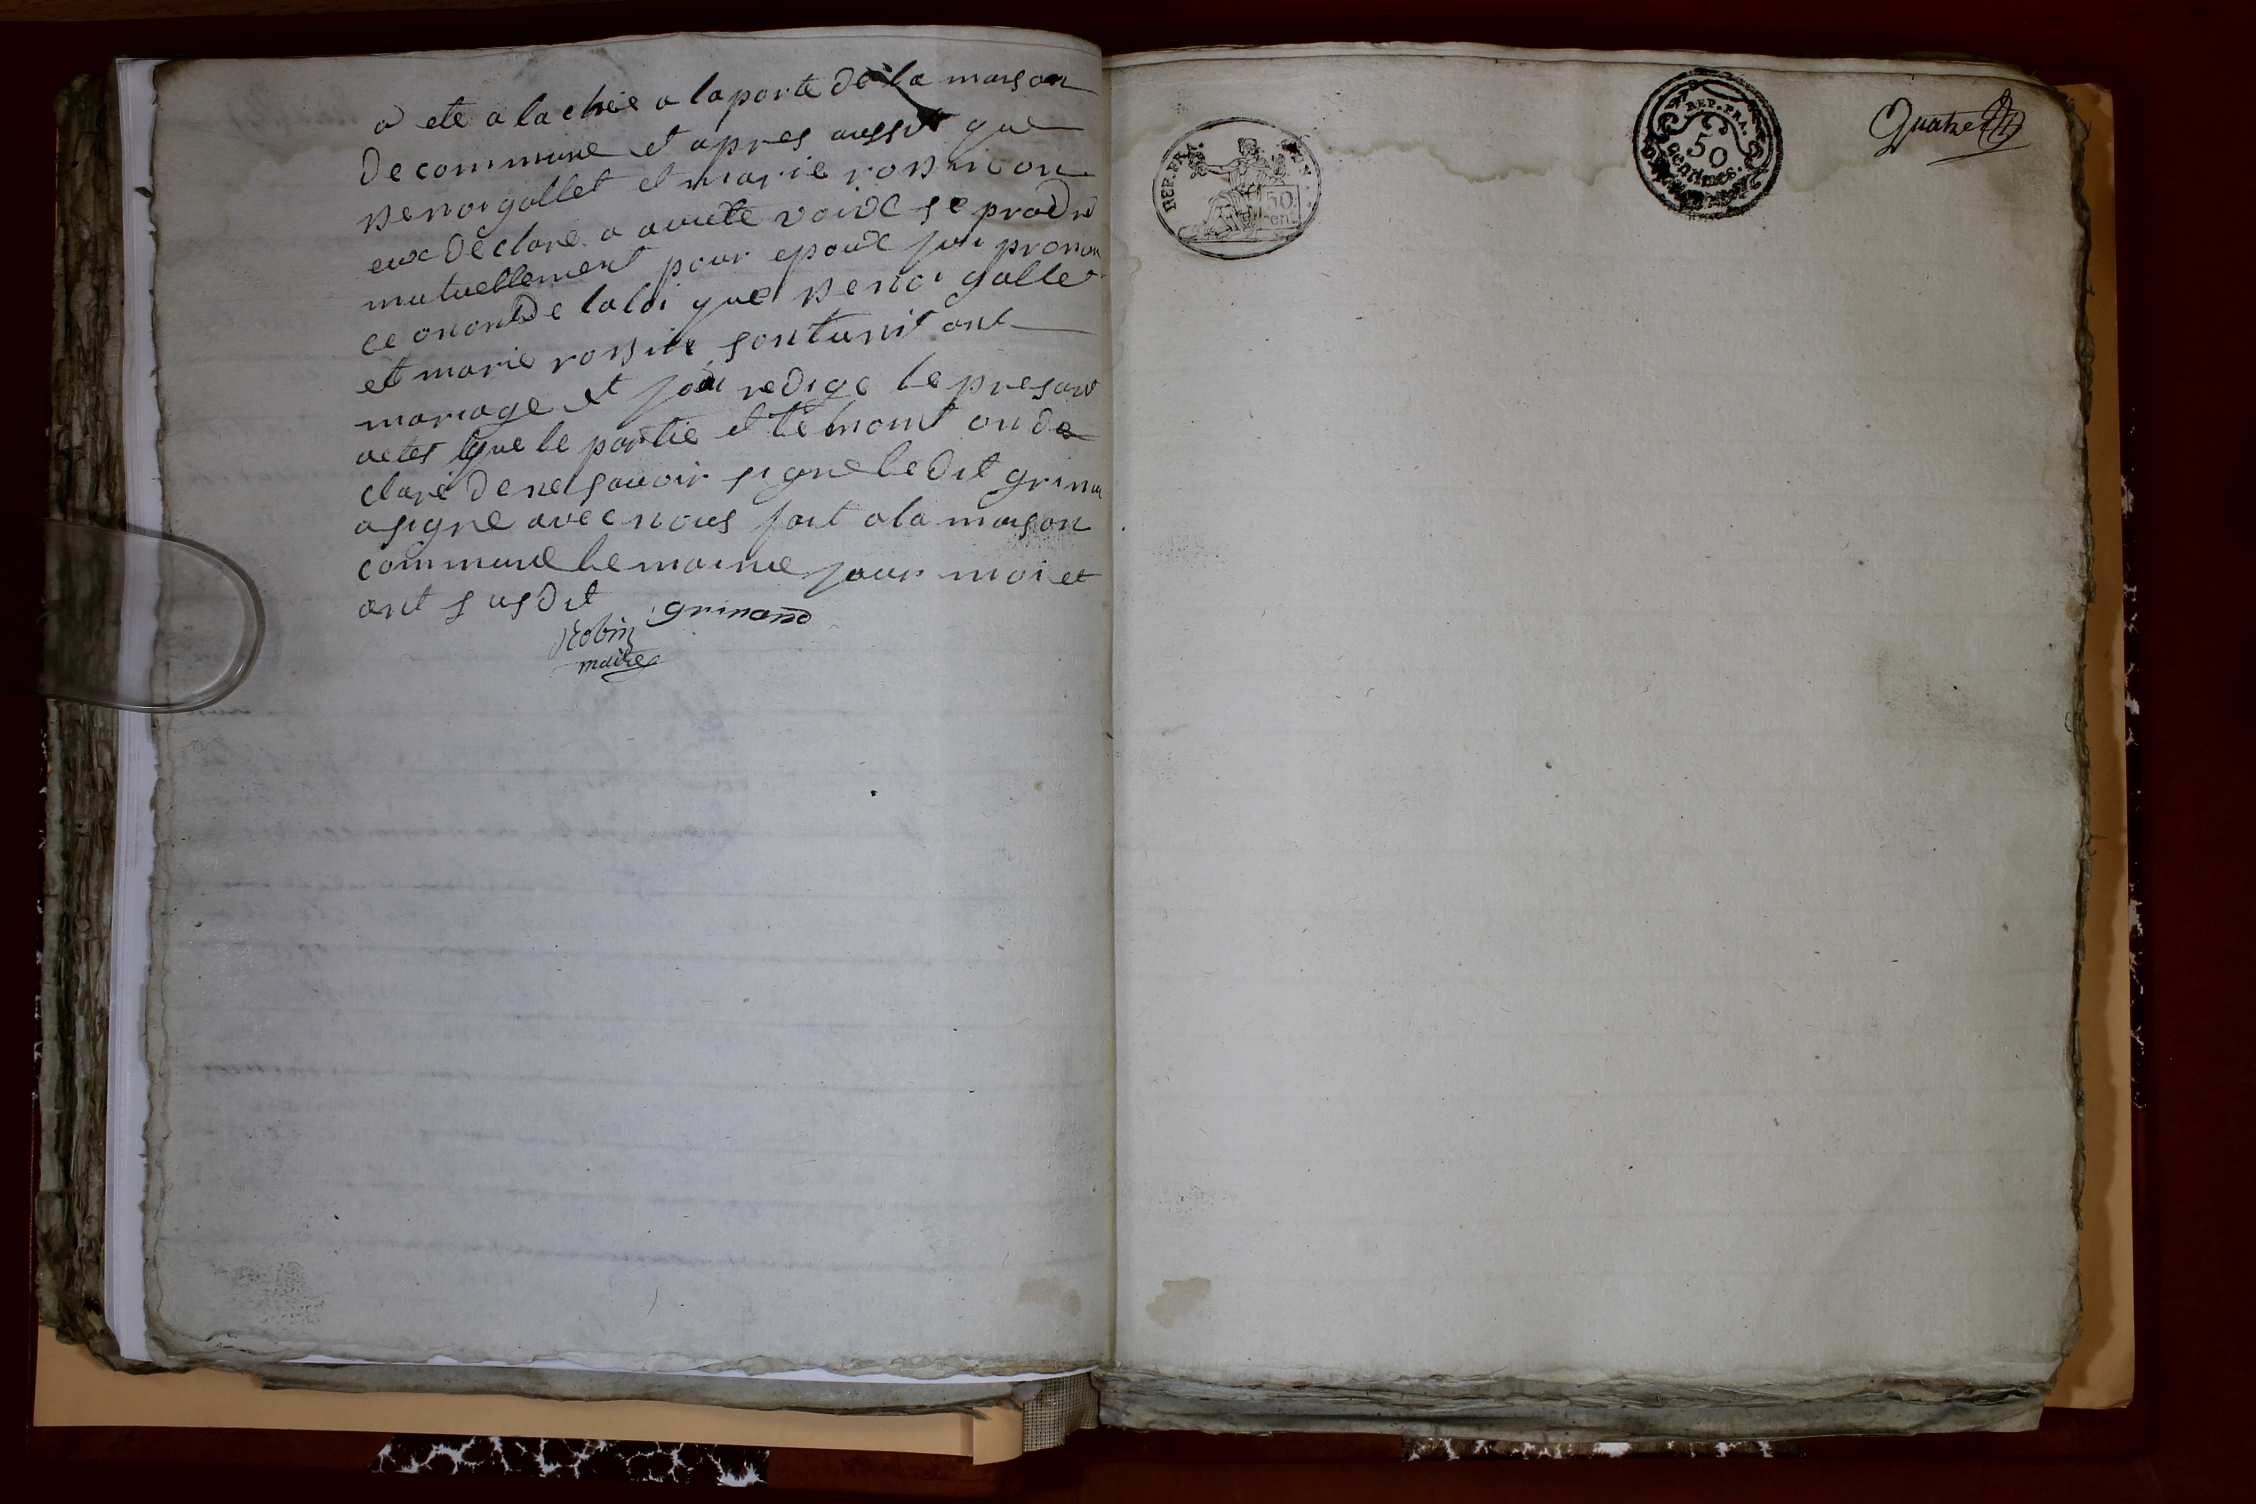 a ete a lachée a la porte de la maison
de commune et apres aussit que
benoi gollet et marie rossin on
eux declare a aute voix se prodre
mutuellement pour epoux jai pronon
ce onont de la loi que benoi gollet
et marie rossin sontunit ant
mariage et jai redige le presant
actes que le partie et temoint on de
claré de ne savoir signe le dit grina
a signe avec nous fait a la maison
commune le moime jour moi et
ant susdit
grinand
Robin
maire
REP. FRA.
50
cent
REP. FRA.
50
centimes.
Quatre 4